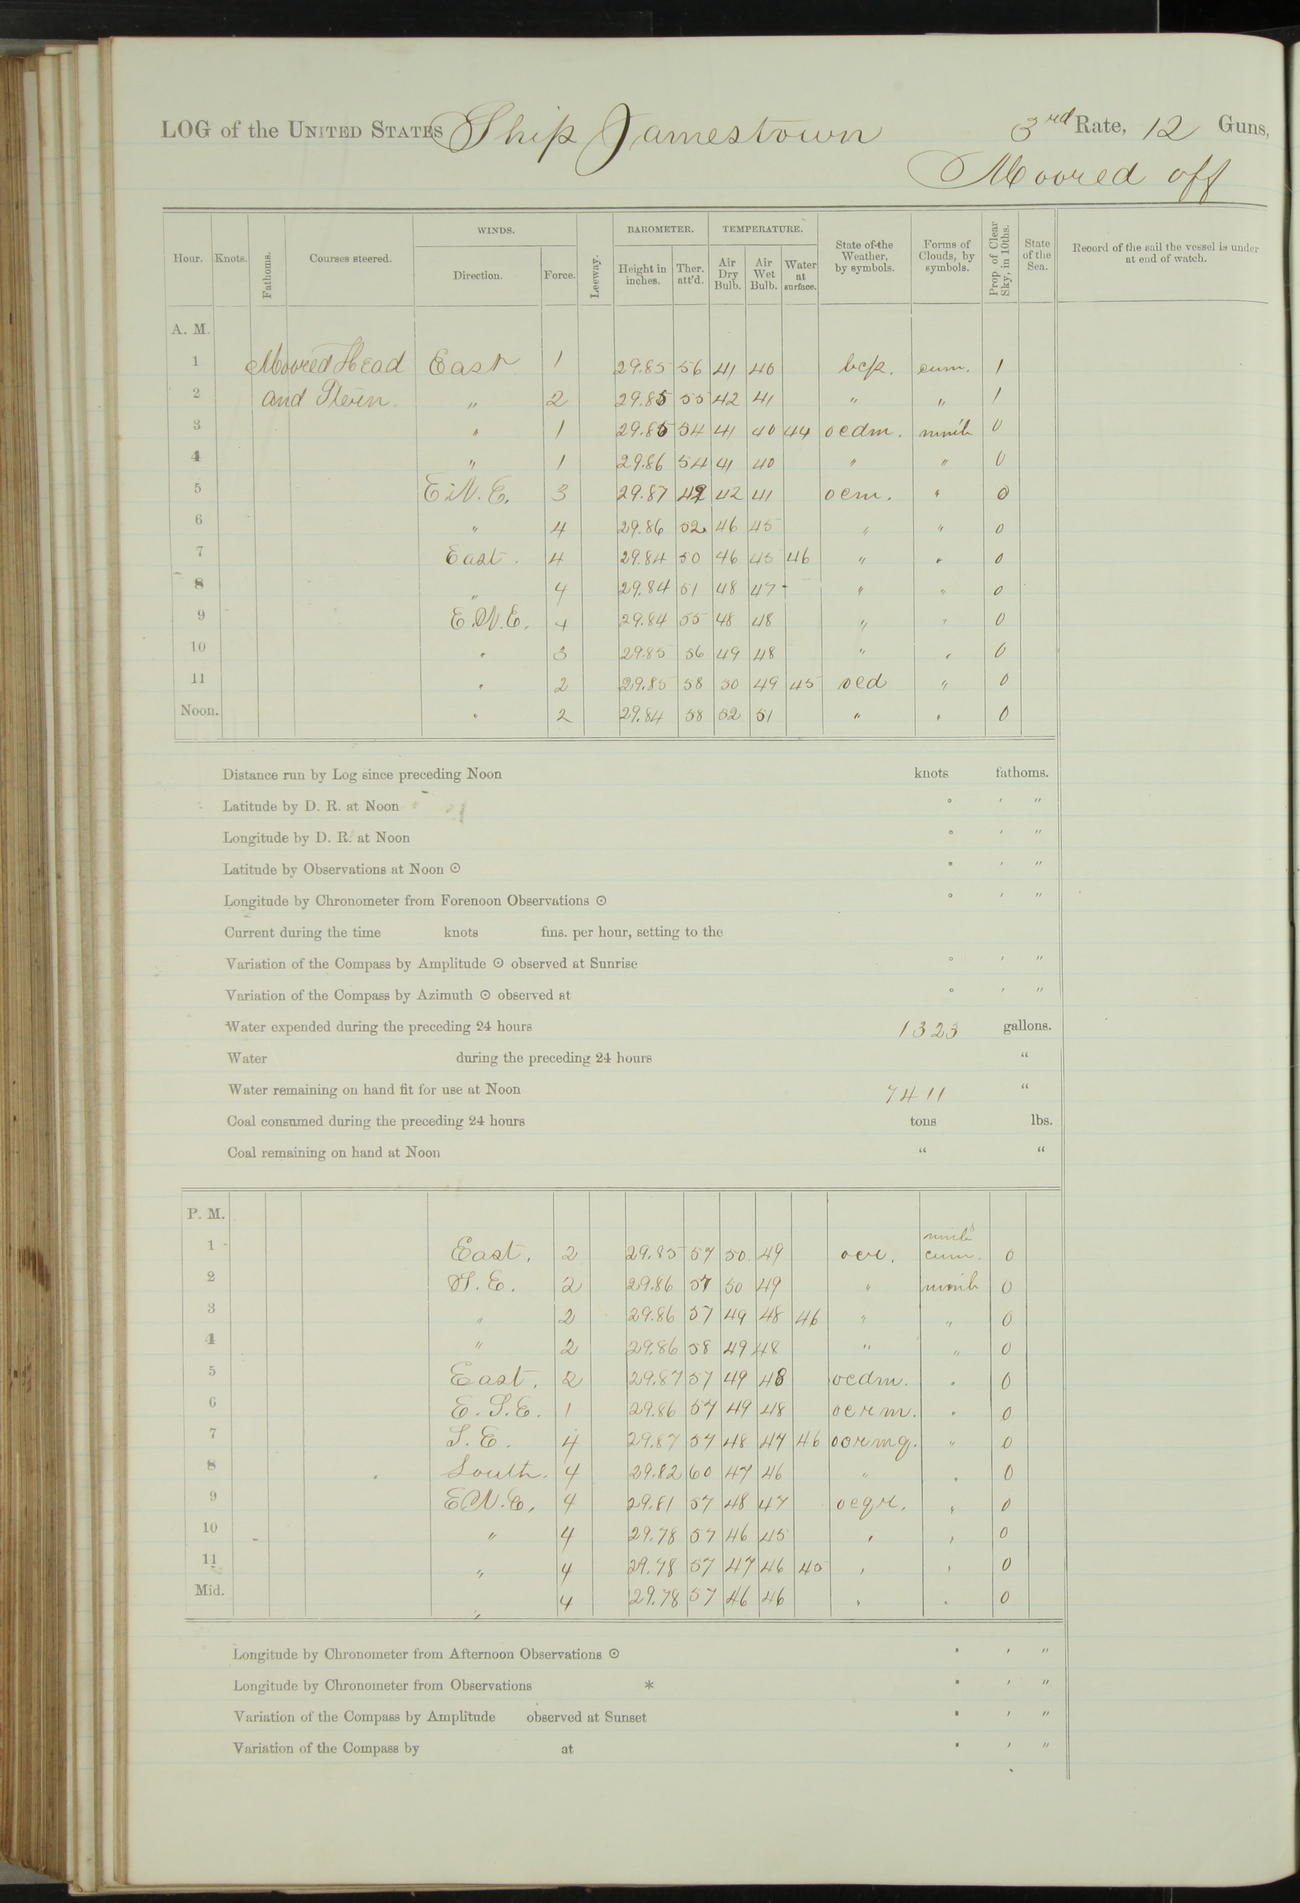 LOG of the UNITED STATES Ship Jamestown 3rd Rate, 12 Guns,
Moored off
Hour. Knots. Fathoms. Courses steered. WINDS. Direction. Force. Leeway. BAROMETER. Height in inches. Ther. att'd. TEMPERATURE. Air Dry Bulb. Air Wet Bulb. Water at surface. State of the Weather, by symbols. Forms of Clouds, by symbols. Prop. of Clear Sky, in 10ths. State of the Sea. Record of the sail the vessel is under at end of watch.
A. M.
1 Moored Head East 1 29.85 56 41 40 bcp. cum. 1
2 and Stern. " 2 29.85 55 42 41 " " 1
3 " 1 29.85 54 41 40 44 ocdm. nimb 0
4 " 1 29.86 54 41 40 " " 0
5 E.N.E. 3 29.87 42 41 ocm. " 0
6 " 4 29.86 52 46 45 " " 0
7 East. 4 29.84 50 46 45 46 " " 0
8 " 4 29.84 51 48 47 " " 0
9 E.N.E. 4 29.84 55 48 48 " " 0
10 " 3 29.85 56 49 48 " " 0
11 " 2 29.85 58 50 49 45 ocd " 0
Noon. " 2 29.84 58 52 51 " " 0
Distance run by Log since preceding Noon knots fathoms.
Latitude by D. R. at Noon ° ' "
Longitude by D. R. at Noon ° ' "
Latitude by Observations at Noon ☉ ° ' "
Longitude by Chronometer from Forenoon Observations ☉ ° ' "
Current during the time knots fms. per hour, setting to the
Variation of the Compass by Amplitude ☉ observed at Sunrise ° ' "
Variation of the Compass by Azimuth ☉ observed at ° ' "
Water expended during the preceding 24 hours 1323 gallons.
Water during the preceding 24 hours "
Water remaining on hand fit for use at Noon 7411 "
Coal consumed during the preceding 24 hours tons lbs.
Coal remaining on hand at Noon " "
P. M.
nimb
1 East. 2 29.85 57 50 49 ocr. cum. 0
2 S.E. 2 29.86 57 50 49 " nimb 0
3 " 2 29.86 57 49 48 46 " " 0
4 " 2 29.86 58 49 48 " " 0
5 East. 2 29.87 57 49 48 ocdm. " 0
6 E.S.E. 1 29.86 57 49 48 ocrm. " 0
7 S.E. 4 29.87 57 48 47 46 ocrmq. " 0
8 South. 4 29.82 60 47 46 " " 0
9 E.N.E. 4 29.81 57 48 47 ocqr. " 0
10 " 4 29.78 57 46 45 " " 0
11 " 4 29.78 57 47 46 45 " " 0
Mid. " 4 29.78 57 46 46 " " 0
Longitude by Chronometer from Afternoon Observations ☉ ° ' "
Longitude by Chronometer from Observations * ° ' "
Variation of the Compass by Amplitude observed at Sunset ° ' "
Variation of the Compass by at ° ' "